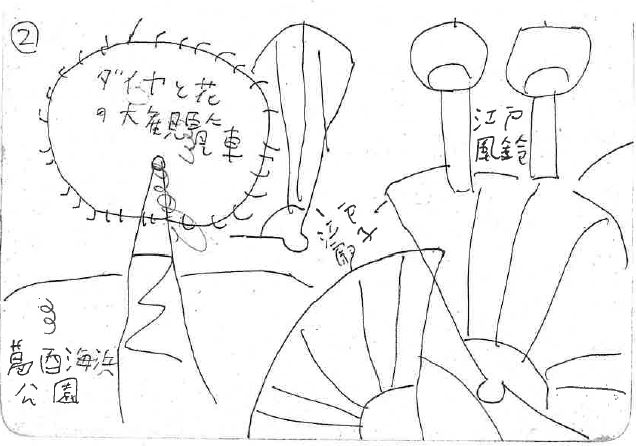 ②
ダイヤと花
の大観覧車
江戸
風鈴
江戸
扇子
葛西海浜
公園